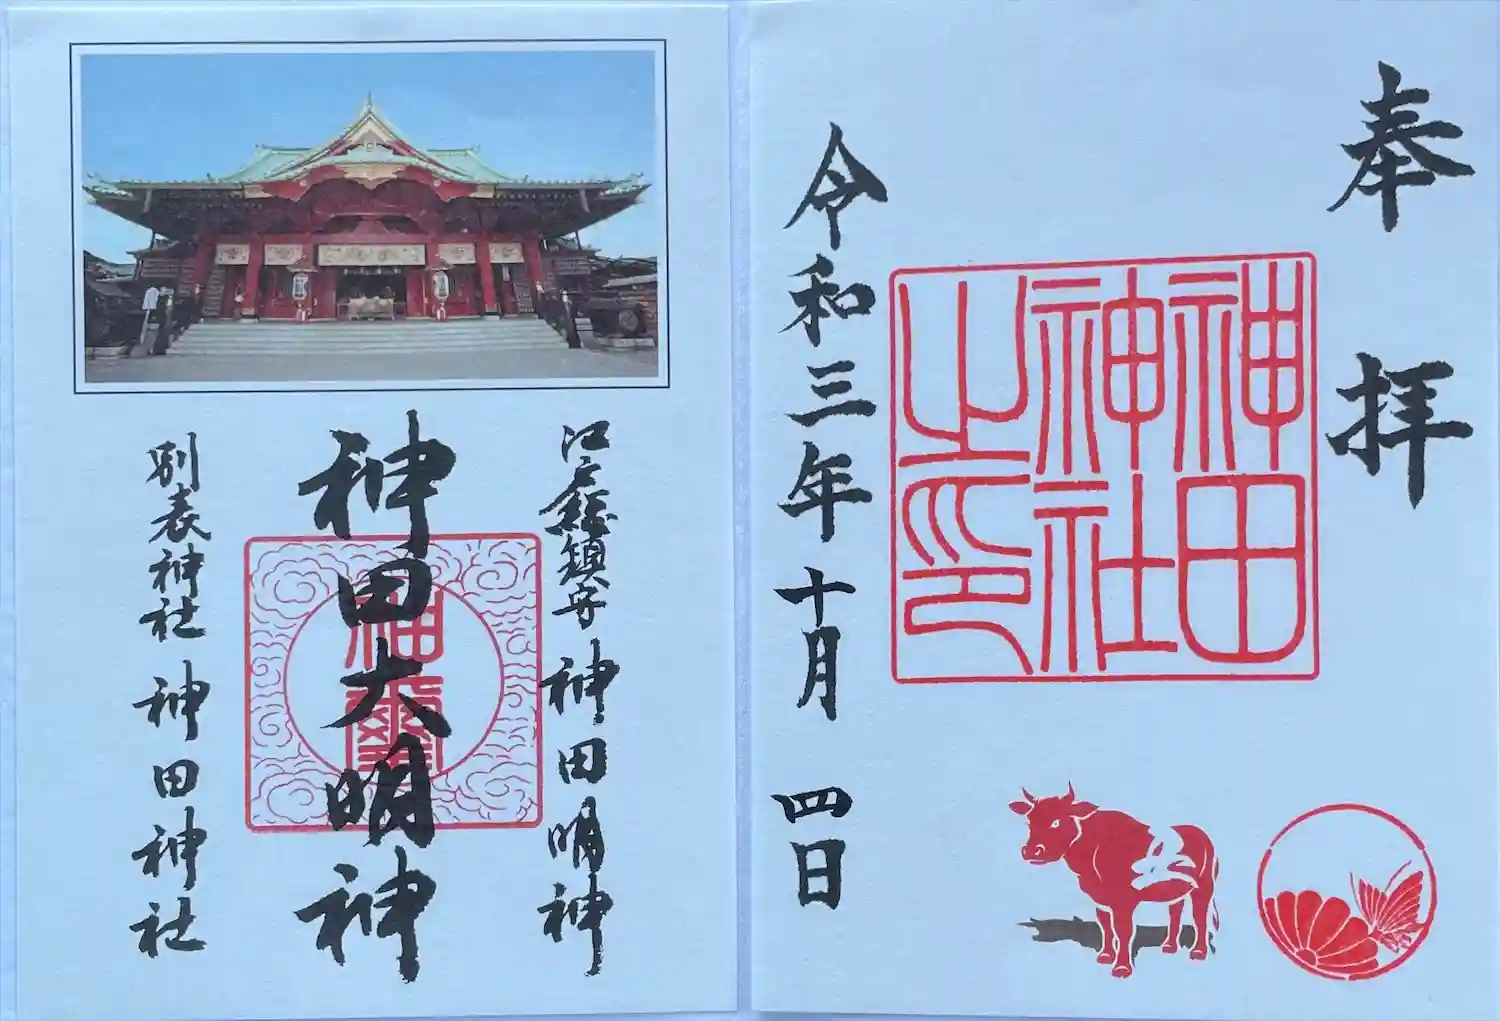 奉拝
神田
神社
之印
令和三年十月四日
江戸総鎮守 神田明神
神田大明神
神璽
別表神社 神田神社